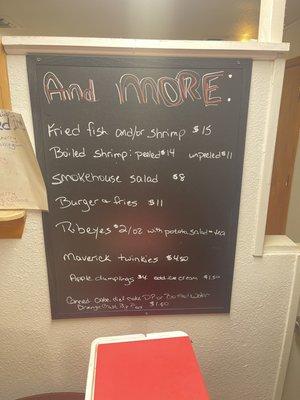 And MORE:
Fried fish and/or shrimp $15
Boiled shrimp: peeled $14 unpeeled $11
Smokehouse salad $8
Burger & fries $11
Ribeyes $2/oz with potato salad
Maverick twinkies $4.50
Apple dumplings $4 add ice cream $1.50
Canned coke, diet coke, DP or Bottled Water
$1.00